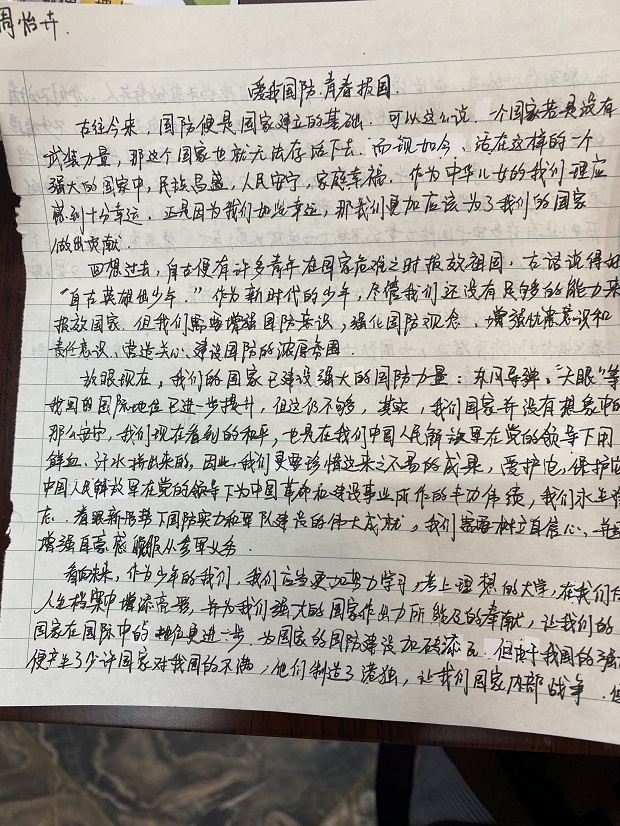 周怡卉.
爱我国防.青春报国.
古往今来，国防便是国家建立的基础.可以这么说.一个国家若是没有
武装力量，那这个国家也就无法存活下去.而现如今、活在这样的一个
强大的国家中，民族昌盛，人民安宁，家庭幸福.作为中华儿女的我们理应
感到十分幸运.正是因为我们如此幸运，那我们更加应该为了我们的国家
做出贡献
回想过去，自古便有许多青年在国家危难之时报效祖国.古话说得好
“自古英雄出少年.”作为新时代的少年，尽管我们还没有足够的能力来
报效国家.但我们需要增强国防意识，强化国防观念、增强忧患意识和
责任意识、营造关心、建设国防的浓厚氛围.
放眼现在，我们的国家已建设强大的国防力量：东风导弹、“天眼”等
我国的国际地位已进一步提升，但这仍不够，其实，我们国家并没有想象中的
那么安宁，我们现在看到的和平，也是在我们中国人民解放军在党的领导下用
鲜血、汗水拼出来的，因此，我们更要珍惜这来之不易的成果，爱护它，保护它
中国人民解放军在党的领导下为中国革命和建设事业所作的丰功伟绩，我们永生难
忘.看眼新形势下国防实力和军队建设的伟大成就，我们需要树立自信心、并
增强自豪感 服从参军义务.
看向未来，作为少年的我们，我们应当更加努力学习，考上理想的大学，在我们
人生档案中增添亮影，并为我们强大的国家作出力所能及的奉献，让我们的
国家在国际中的地位更进一步.为国家的国防建设加砖添瓦.但由于我国的强
便产生了少许国家对我国的不满，他们制造了港独，让我们国家内部战争.